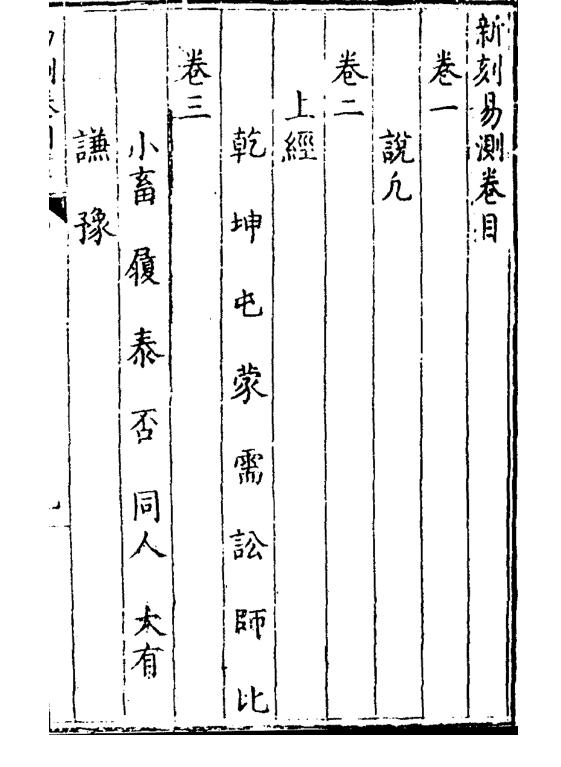 新刻易測卷目
卷一
說凡
卷二
上經
乾 坤 屯 蒙 需 訟 師 比
卷三
小畜 履 泰 否 同人 大有
謙 豫